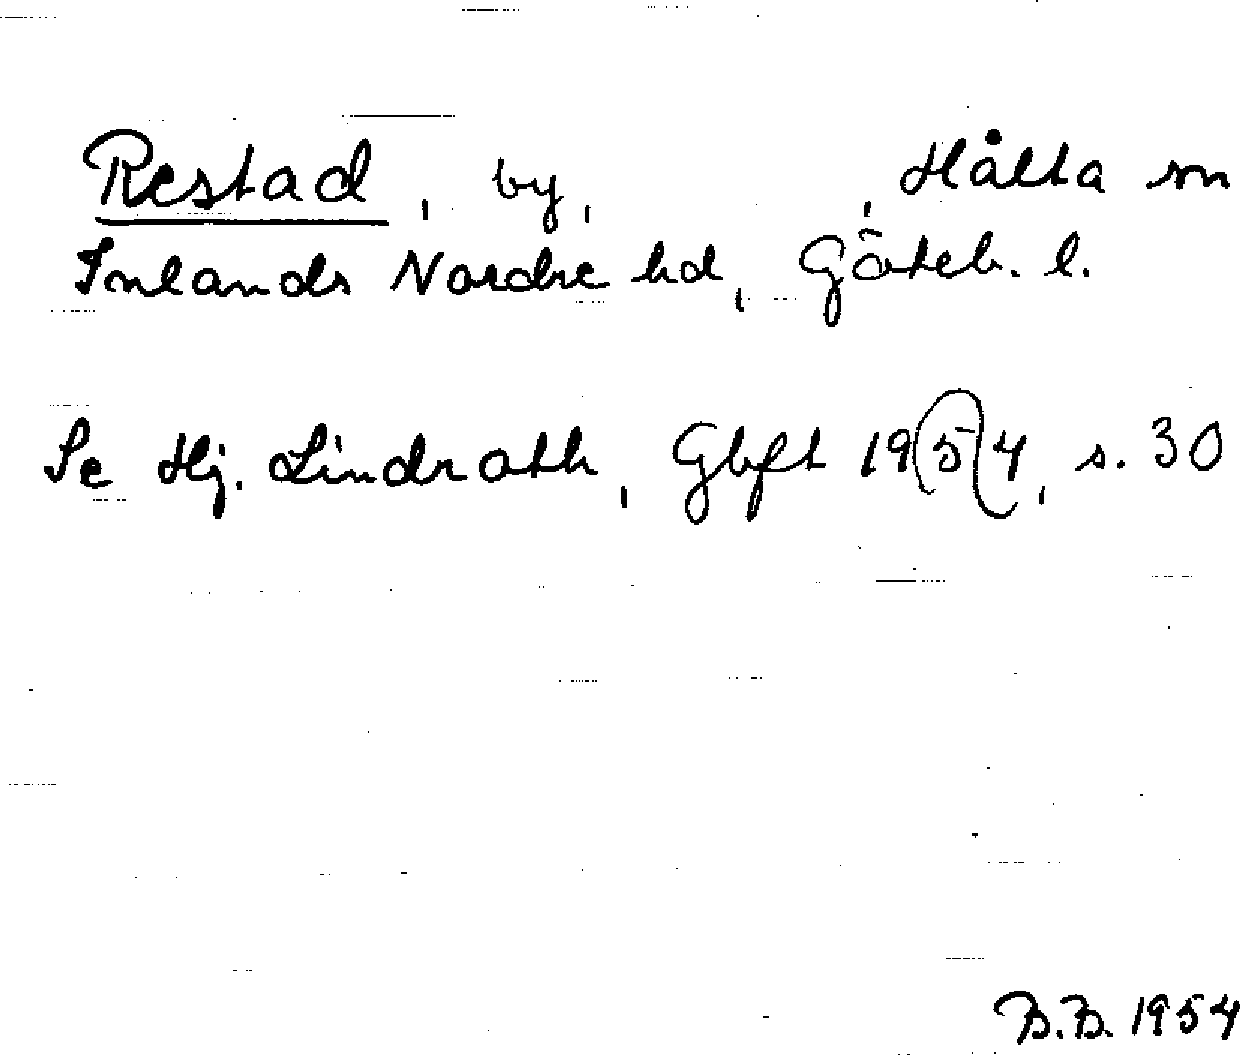 Restad, by, , Hålta sn
Inlands Nordre hd, Göteb. l.
Se Hj. Lindroth, Gbft 1954, s. 30
B.B. 1954